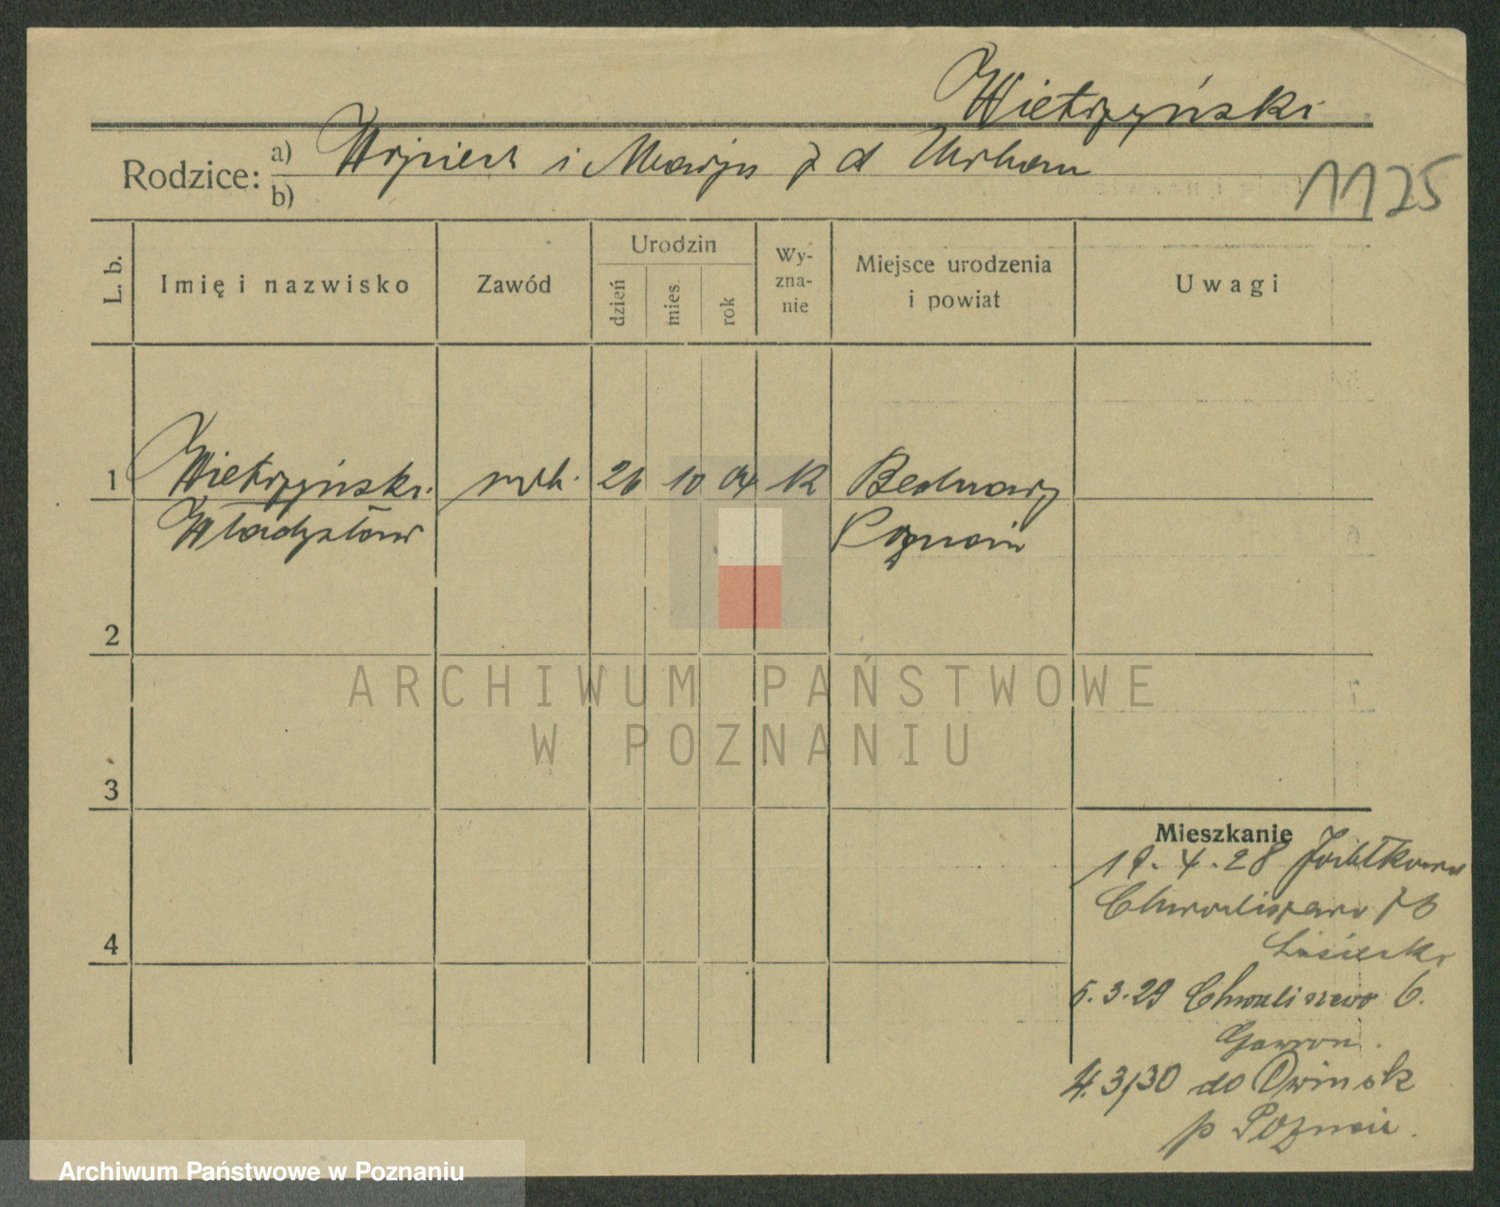 Wietrzyński
Rodzice: a) Wojciech i Marja z d Urban
b)
1125
L. b.
Imię i nazwisko
Zawód
Urodzin
dzień
mies.
rok
Wy-
zna-
nie
Miejsce urodzenia
i powiat
Uwagi
1 Wietrzyński 26 10 04 K Bednary
Władysław Poznań
2
3
4
Mieszkanie
19.4.28
Chwaliszewo
5.3.29 Chwaliszewo 6.
Gawron.
4.3/30 do Owinsk
p Poznań.
ARCHIWUM PAŃSTWOWE
W POZNANIU
Archiwum Państwowe w Poznaniu